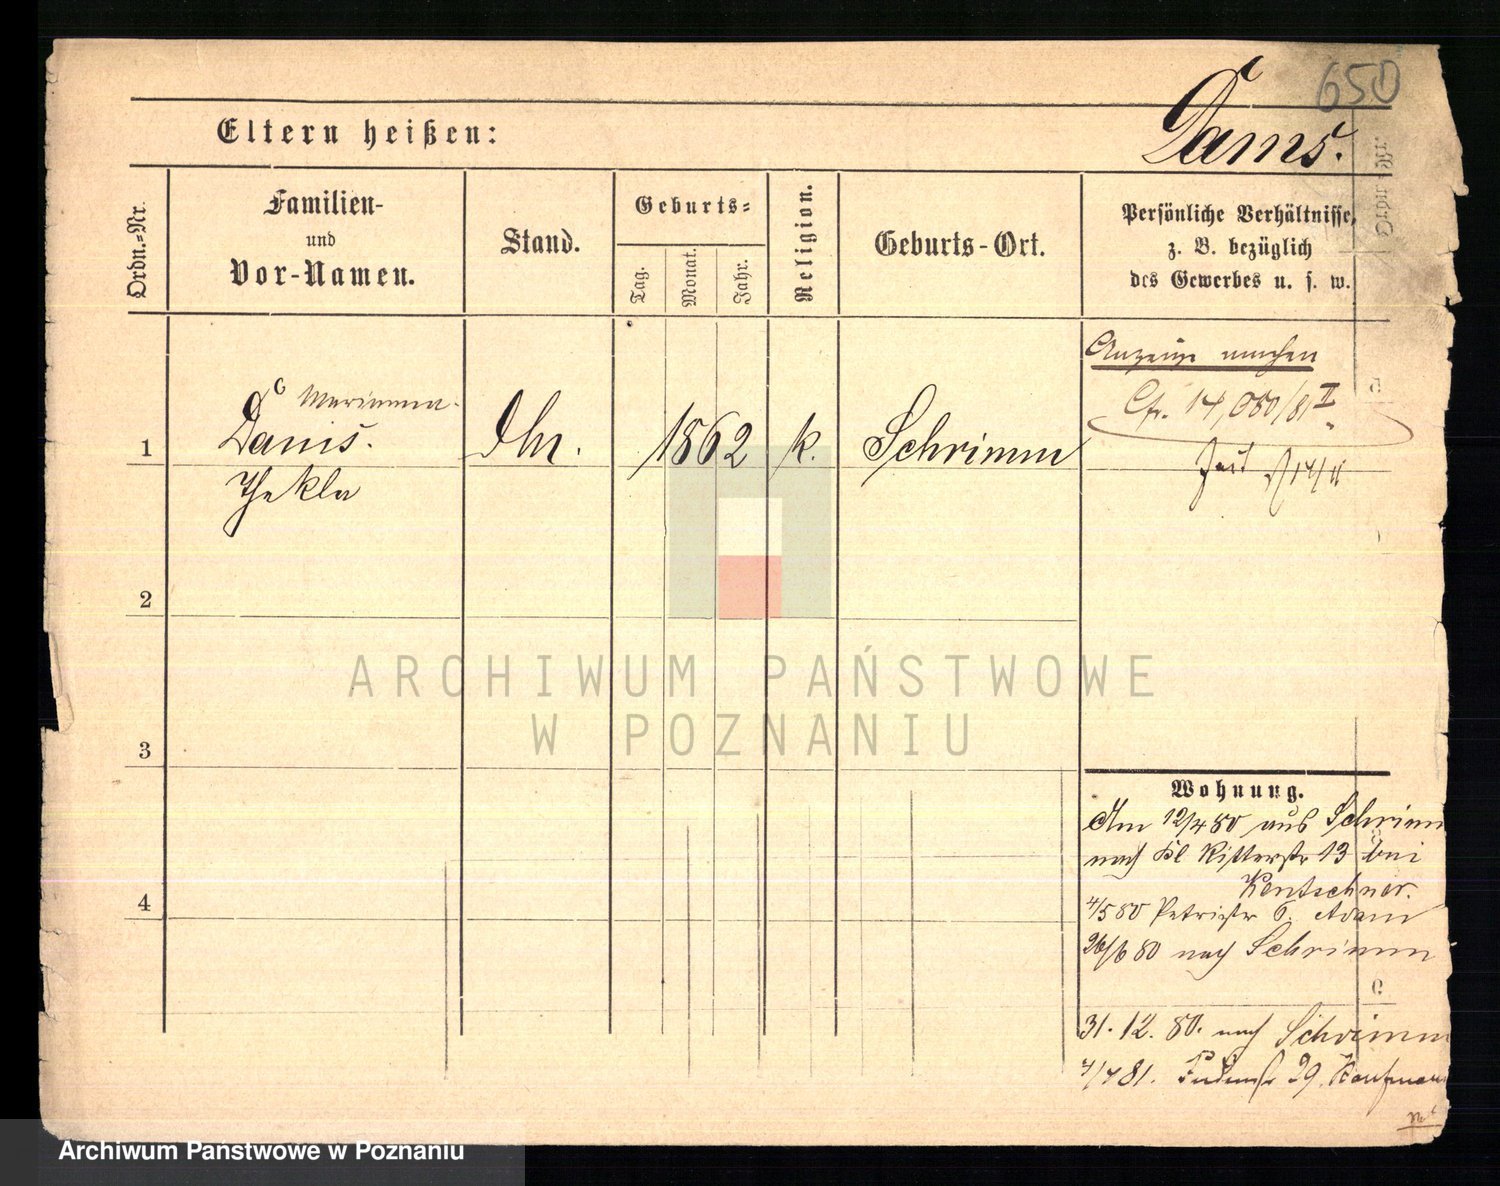 650
Dams.
Eltern heißen:
Ordn.=Nr.
Familien-
und
Vor-Namen.
Stand.
Geburts=
Tag.
Monat.
Jahr.
Religion.
Geburts-Ort.
Persönliche Verhältnisse,
z. B. bezüglich
des Gewerbes u. s. w.
Anzeige machen
Cfr. 14,080/81 II
Marianna
1
Danis.
1862
k.
Schrimm
Thekla
2
3
4
ARCHIWUM PAŃSTWOWE
W POZNANIU
Wohnung.
Am 12/4 80 aus Schrimm
nach Kl Ritterstr 13 bei
Kentschner.
4/5 80 Petristr 6. Adam
26/6 80 nach Schrimm
31. 12. 80. nach Schrimm
4/4 81. 29. Kaufmann
Archiwum Państwowe w Poznaniu